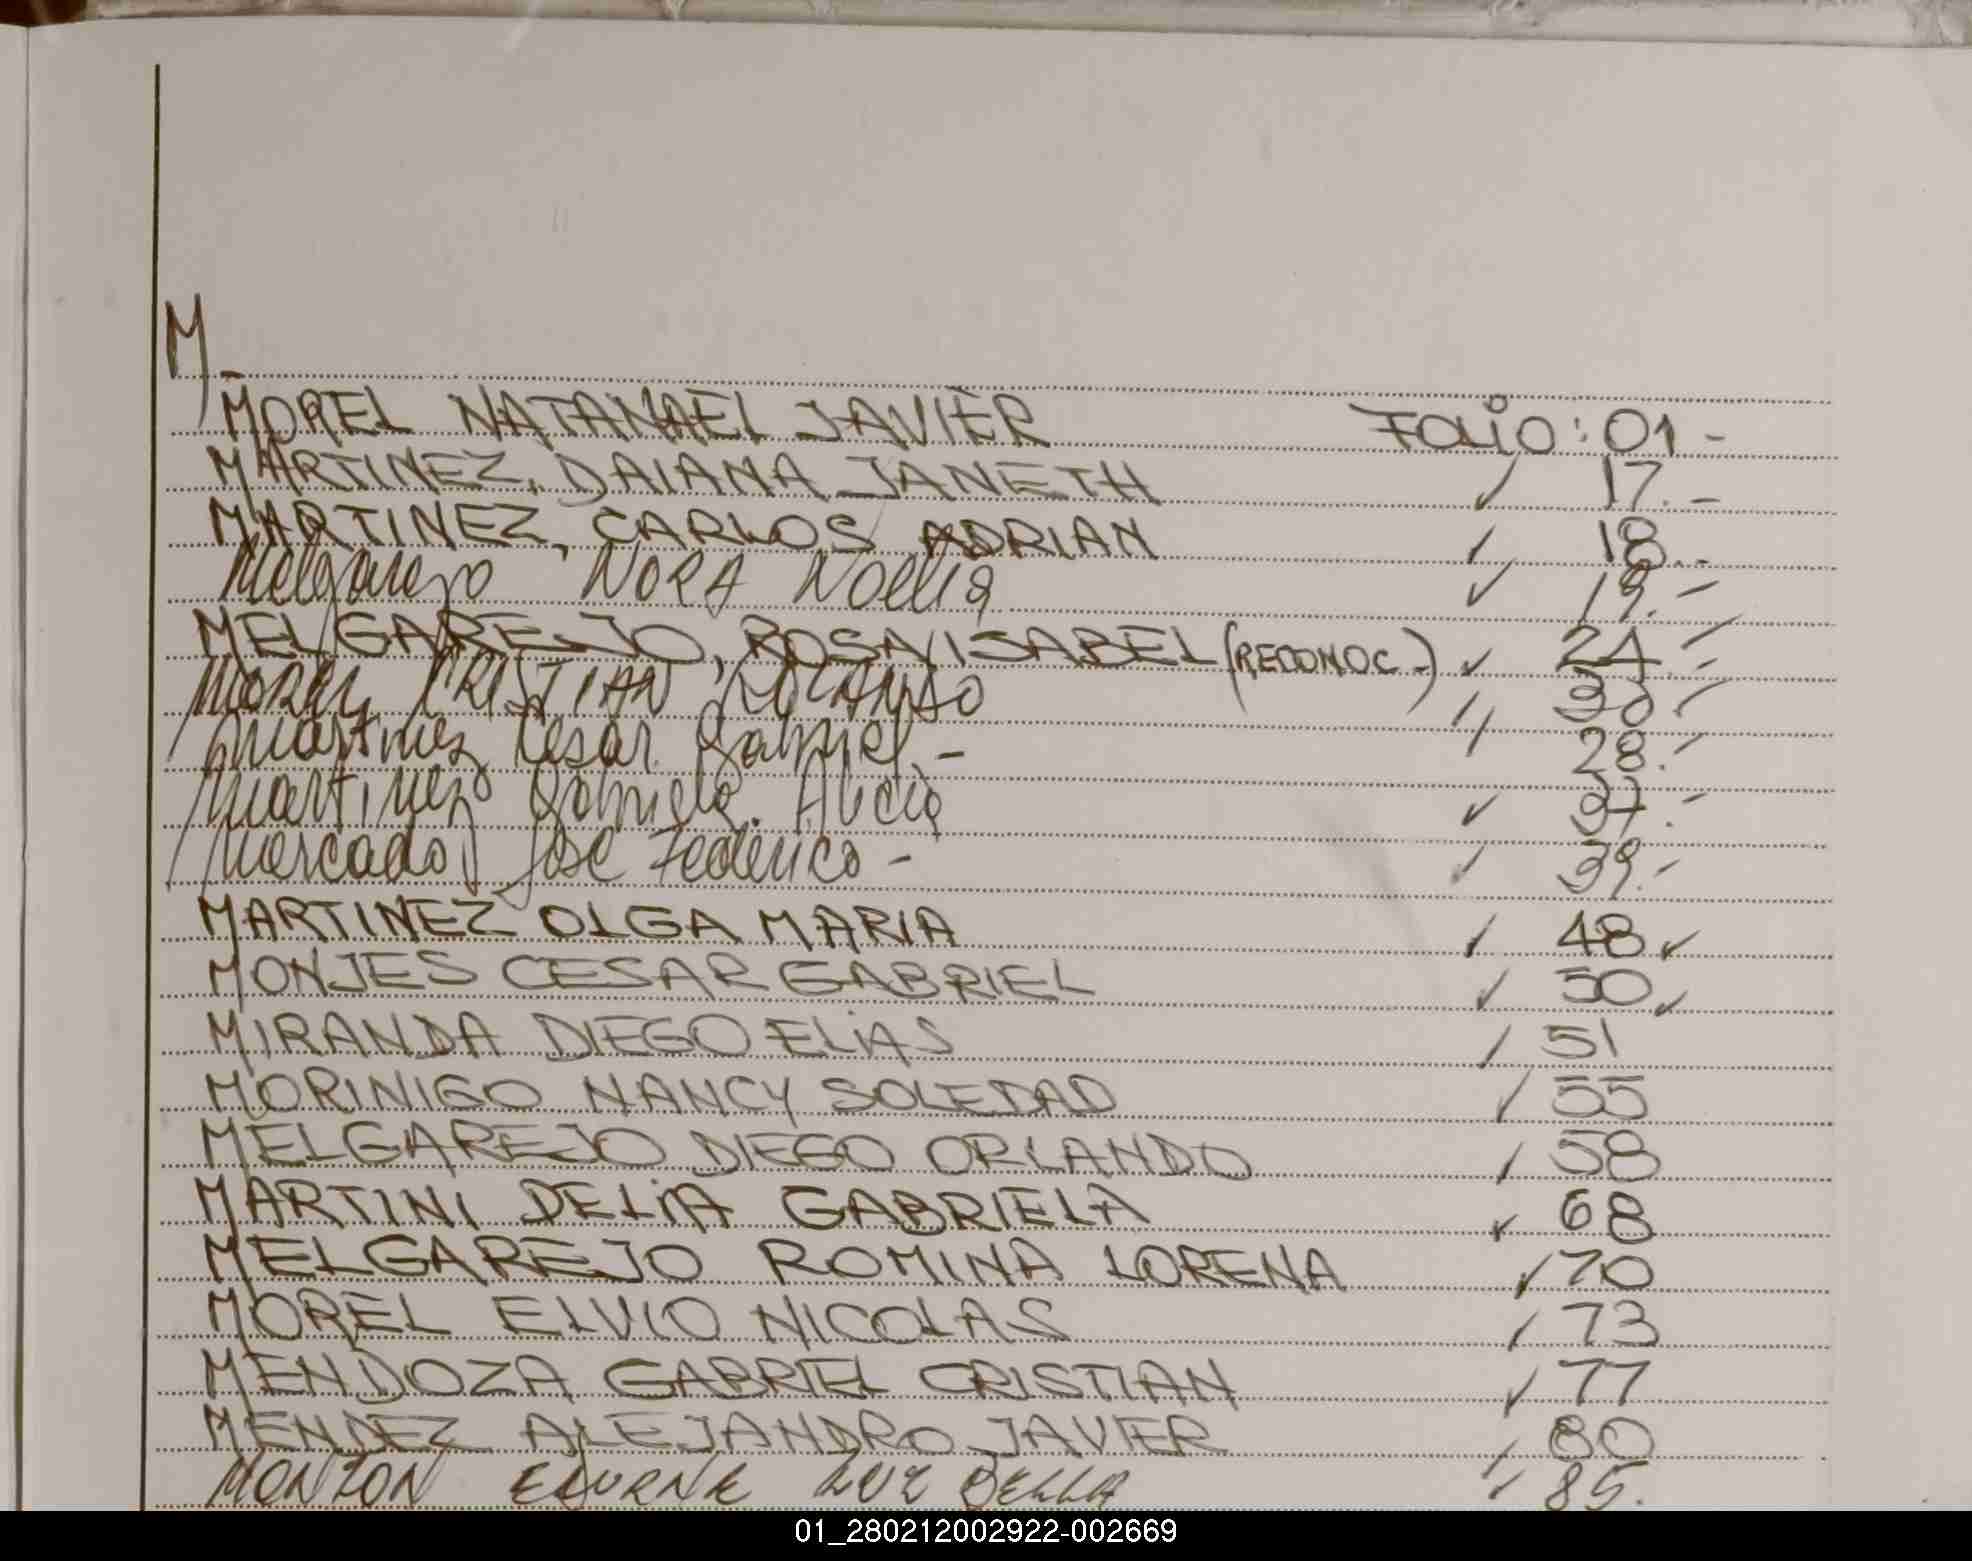 M-
MOREL NATANAEL JAVIER FOLIO: 01-
MARTINEZ, DAIANA JANETH ✓ 17.-
MARTINEZ, CARLOS ADRIAN ✓ 18.-
Melgarejo NORA Noelia ✓ 19.-
MELGAREJO, ROSA ISABEL (RECONOC.-) ✓ 24.-
MOREL CRISTIAN ✓ 30.-
Martinez Cesar Gabriel.- ✓ 28.-
Martinez Gabriela Alicia ✓ 37.-
Mercado José Federico- ✓ 39.-
MARTINEZ OLGA MARIA ✓ 48 ✓
MONJES CESAR GABRIEL ✓ 50 ✓
MIRANDA DIEGO ELIAS ✓ 51
MORINIGO NANCY SOLEDAD ✓ 55
MELGAREJO DIEGO ORLANDO ✓ 58
MARTINI DELIA GABRIELA ✓ 68
MELGAREJO ROMINA LORENA ✓ 70
MOREL ELVIO NICOLAS ✓ 73
MENDOZA GABRIEL CRISTIAN ✓ 77
MENDEZ ALEJANDRO JAVIER ✓ 80
MONZON LUZ BELLA ✓ 85.
01_280212002922-002669